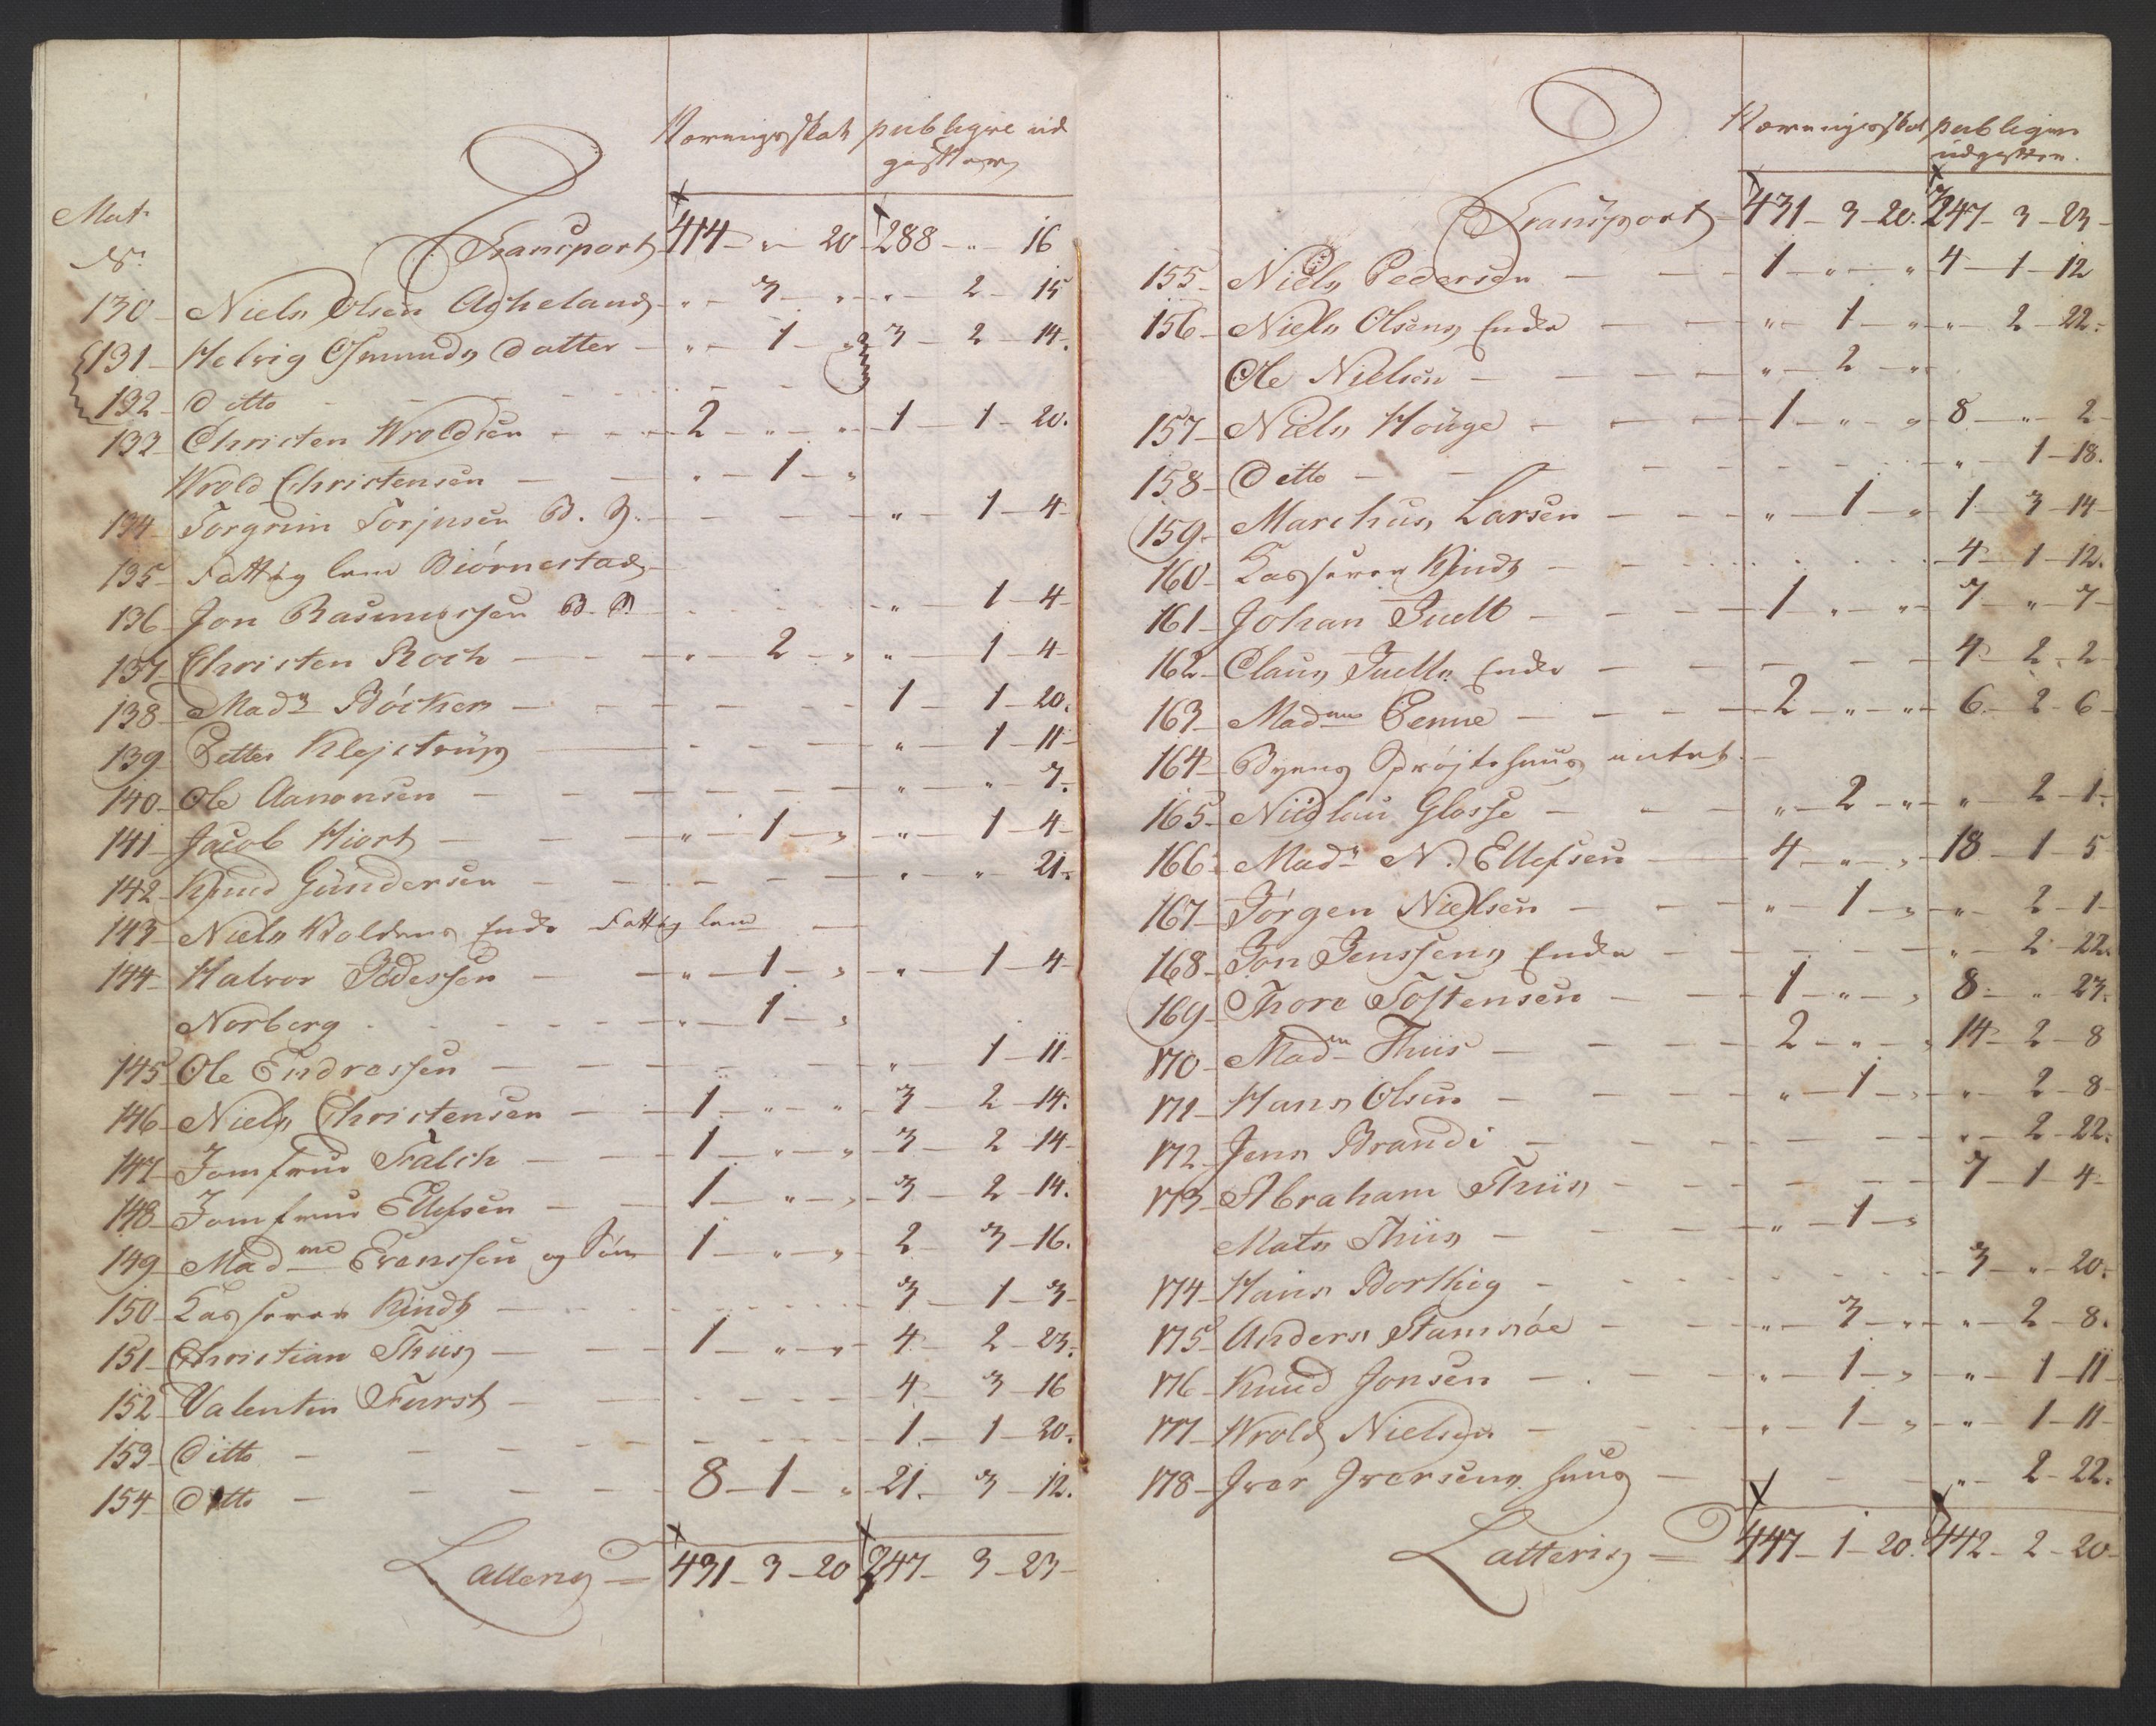 Næringsskat publique ud
gifter
Mat
No
Transport 414 - " - 20 288 - " - 16
130 Niels Olsen Agheland " - 3 - " " - 2 - 15
131 Helvig Osmunds Datter " - 1 - " 3 - 2 - 14.
132 Ditto
133 Christen Wroldsen 2 - " - " 1 - 1 - 20.
Wrold Christensen " - 1 - "
134 Torgrim Torjusen B. " - 1 - 4
135 Fattig lem Biörnestad
136 Jon Rasmussen B. " - 1 - 4
137 Christen Roch " - 2 - " " - 1 - 4
138 Madm Böcker 1 - 1 - 20.
139 Petter Klejstrup " - 1 - 11
140 Ole Aanonsen " - " - 7.
141 Jacob Hiort " - 1 - " " - 1 - 4
142 Knud Gundersen " - " - 21.
143 Niels Woldens Enke Fattig lem
144 Halvor Bodessen " - 1 - " " - 1 - 4
Norberg " - 1 - "
145 Ole Endressen " - 1 - 11
146 Niels Christensen 1 - " - " 3 - 2 - 14.
147 Jomfrue Falch 1 - " - " 3 - 2 - 14
148 Jomfrue Ellefsen 1 - " - " 3 - 2 - 14.
149 Madme Evenssen og Sön 1 - " - " 2 - 3 - 16.
150 Casserer Kindt 3 - 1 - 3
151 Christian Thiis 1 - " - " 4 - 2 - 23.
152 Valentin Furst 4 - 3 - 16
153 Ditto 1 - 1 - 20.
154 Ditto 8 - 1 - " 21 - 3 - 12.
Latteris 431 - 3 - 20 347 - 3 - 23
Næringsskat publique
udgifter.
Transport 431 - 3 - 20. 347 - 3 - 23
155 Niels Pedersen 1 - " - " 4 - 1 - 12
156 Niels Olsens Enke " - 1 - " " - 2 - 22.
Ole Nielsen " - 2 - "
157 Niels Houge 1 - " - " 8 - " - 2
158 Ditto " - 1 - 18.
159 Marchus Larsen " - 1 - " 1 - 3 - 14
160 Casserer Kindt 4 - 1 - 12.
161 Johan Juell 1 - " - " 7 - " - 7
162 Claus Juells Enke 4 - 2 - 2
163 Madme Penne 2 - " - " 6 - 2 - 6
164 Byens Spröjtehuus intet
165 Nicolai Glosse " - 2 - " " - 2 - 1.
166 Madm N. Ellefsen 4 - " - " 18 - 1 - 5
167 Jörgen Nielsen " - 1 - " " - 2 - 1
168 Jon Jenssens Enke " - 2 - 22.
169 Thore Tostensen 1 - " - " 8 - " - 23.
170 Madm Thiis 2 - " - " 14 - 2 - 8
171 Hans Olsen " - 1 - " " - 2 - 8
172 Jens Brandi " - 2 - 22.
173 Abraham Thiis 7 - 1 - 4
Mats Thiis " - 1 - "
174 Hans Borthig 3 - " - 20.
175 Anders Stamsöe " - 3 - " " - 2 - 8.
176 Knud Jonsen " - 1 - " " - 1 - 11
177 Wrold Nielsen " - 1 - " " - 1 - 11
178 Iver Iversens huus " - 2 - 22.
Latteris 447 - 1 - 20. 442 - 2 - 20